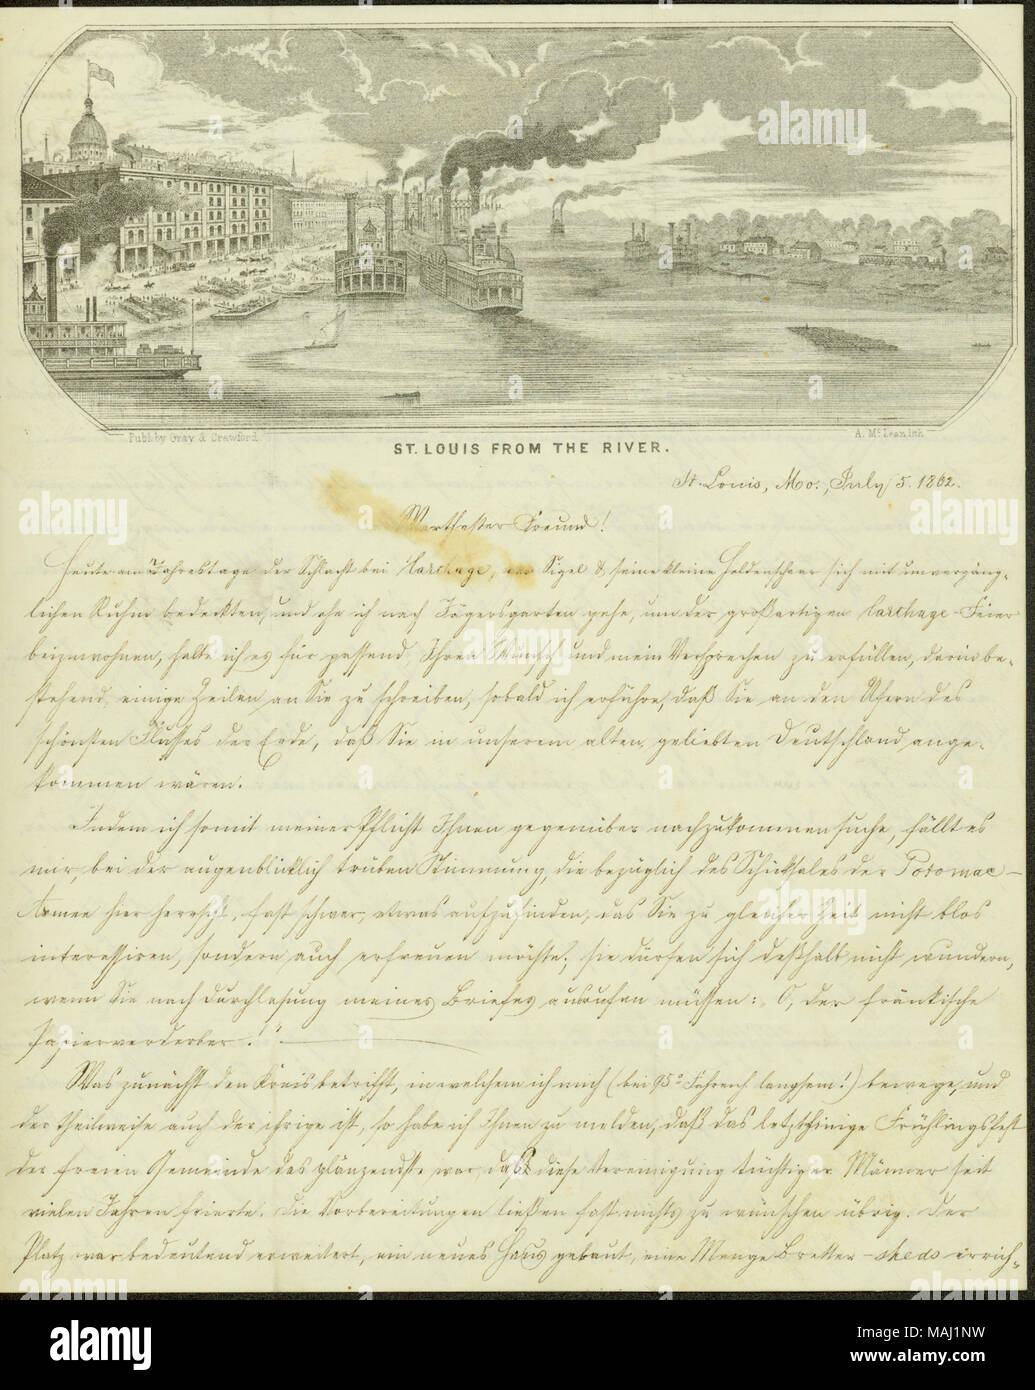 Publ. by Gray & Crawford.
A. McLean lith.
ST. LOUIS FROM THE RIVER.
St. Louis, Mo., July 5. 1862.
Werthester Freund!
Heute am Jahrestage der Schlacht bei Carthage, wo Sigel & seine kleine Heldenschaar sich mit unvergäng-
lichen Ruhm bedeckten, und ehe ich nach Jägersgarten gehe, um der großartigen Carthage-Feier
beizuwohnen, halte ich es für passend, Ihren Wunsch und mein Versprechen zu erfüllen, darin be-
stehend, einige Zeilen an Sie zu schreiben, sobald ich erführe, daß Sie an den Ufern des
schönsten Flusses der Erde, daß Sie in unserem alten, geliebten Deutschland ange-
kommen wären.
Indem ich somit meiner Pflicht Ihnen gegenüber nachzukommen suche, fällt es
mir, bei der augenblicklich trüben Stimmung, die bezüglich des Schicksales der Potomac-
Armee hier herrscht, fast schwer, etwas aufzufinden, das Sie zu gleicher Zeit nicht blos
interessiren, sondern auch erfreuen möchte; sie dürfen sich deßhalb nicht wundern,
wenn Sie nach Durchlesung meines Briefes ausrufen müssen: O, der fränkische
Papierverderber!"
Was zunächst den Kreis betrifft, in welchem ich mich (bei 95° Fahrenh langsam!) bewege, und
der theilweise auch der ihrige ist, so habe ich Ihnen zu melden, daß das letzthinige Frühlingsfest
der freien Gemeinde das glänzendste war, daß diese Vereinigung tüchtiger Männer seit
vielen Jahren feierte. Die Vorbereitungen ließen fast nichts zu wünschen übrig. Der
Platz war bedeutend erweitert, ein neues Haus gebaut, eine Menge Bretter-sheds errich-
alamy
Image ID: MAJ1NW
www.alamy.com